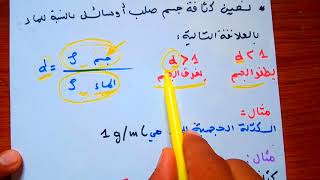 * تعيين كثافة جسم صلب أو سائل بالنسبة للماء
بالعلاقة التالية:
d = ρ جسم / ρ الماء
d > 1
يغرق الجسم
d < 1
يطفو الجسم
مثال:
الكتلة الحجمية هي 1 g/mL
مثال: